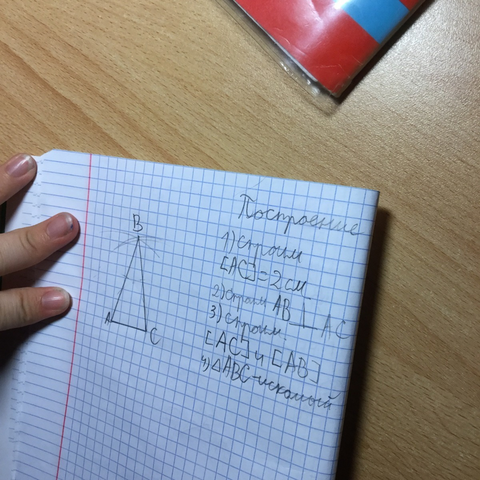 Построение
1) строим
[AC] = 2 см
2) строим AB ⊥ AC
3) строим.
[AC] и [AB]
4) △ABC-искомый
B
A
C